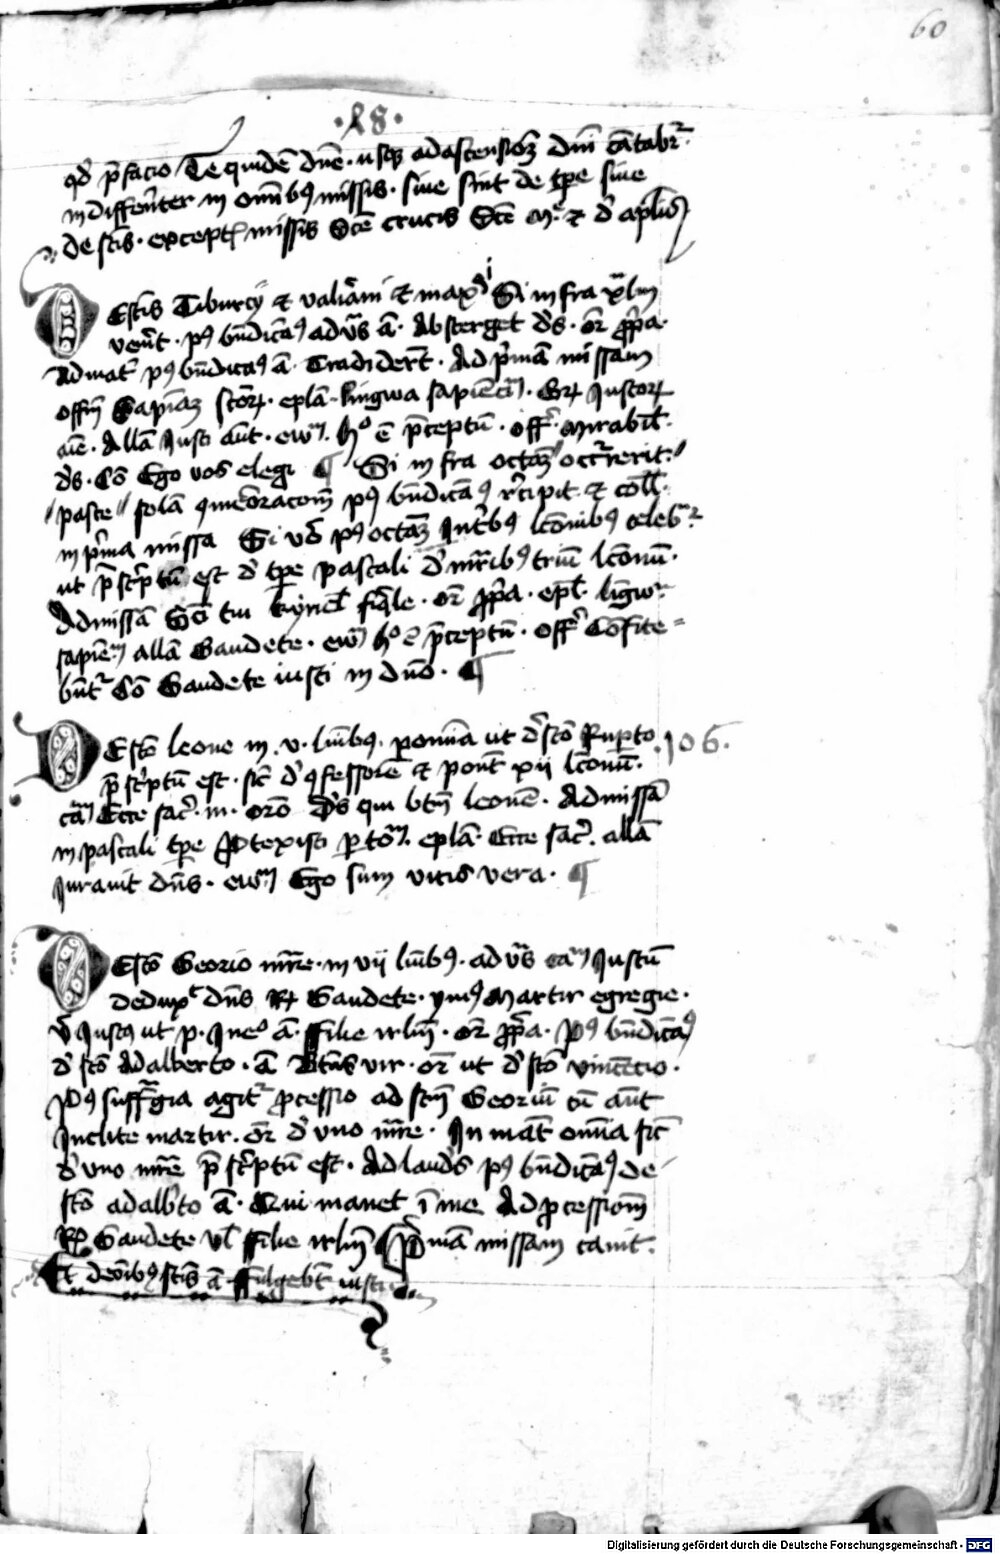 60
·28·
qd̄ p̄facio Te quidē dn̄e · usq̢ ad ascensiōꝫ dn̄i cātabr̄
indiffen̄ter in om̄ib9 missis · siue sint de tp̄e siue
de sc̄is · except̄ missis Sc̄e crucis Sc̄e M̄. et d' ap̄lis
DE sc̄is Tiburcij et valīani et maxi Si infra xl̄m
ven̄it · p9 bn̄dicā9 ad vr̄s ā · Absterget d's · or̄ p̄pa ·
Ad mat̄ p9 bn̄dicā9 ā · Tradidert̄ · Ad p̄mā missam
offm̄ Sapiāꝫ sc̄oꝝ · ep̄lā · Lingwa sapiēciū · Gr̄ Justoꝝ
aīe · Allā Justi aūt · ewm̄ · ho ē p̄ceptū · off̄ · Mirabil̄ ·
d's · Cō Ego vos elegi ¶ Si infra octaꝫ occr̄rerit ·
pasce solā 9meōracom̄ p9 bn̄dicā9 r̄cipit et coll̄ ·
in p̄ma missa Si v̄o p9 octaꝫ Int̄b9 lc̄onib9 celebr̄
ut p̄sc̄ptū est d' tp̄e pascali d' mr̄ib9 triū lc̄onū ·
Ad missā Sc̄i tui kyriel̄ fiāle · or̄ p̄pa · epl̄ · ligw̄
sapiē allā Gaudete · ewm̄ ho ē p̄ceptū · Off̄ Cōfite=
bnt̄ Cō Gaudete iusti in dn̄o · ¶
DE sc̄o leone in · v · lūib9 · ponūn̄ ut d' sc̄o Rup̄to 106.
p̄sc̄ptū est · sic̄ d' 9fessore et pont̄ xij lc̄onū ·
cām̄ Ecce sac̄ · m̄ · orō D's qui btm̄ leonē · Ad missā
in pascali tp̄e Protexisti p totm̄ · ep̄lā · Ecce sac̄ · allā
Jurauit dn̄s · ewm̄ Ego sum vitis vera · ¶
DE sc̄o Georio mr̄e · in vij lūib9 · ad vr̄s cām̄ Justū
deduxt dn̄s R̄ Gaudete · ymꝰ Martir egregie ·
v̄ Justꝰ ut p · Jneo ā · ffilie irl̄m · or̄ p̄pa · P9 bn̄dicā9
d' sc̄o Adalberto · ā Btūs vir · or̄ ut d' sc̄o vincēcio ·
P9 suffr̄gia agit̄ p̄cessio ad sc̄m Georiū cū ant̄
Inclite martir · or̄ d' vno mr̄e · In mat̄ om̄ia sic̄
d' vno mr̄e p̄sc̄ptū est · Ad laud's p9 bn̄dicā9 de
sc̄o adalb̄to ā · Qui manet ī me Ad p̄cessiom̄
R̄ Gaudete vl̄ ffilie irl̄m P̄mam missam canit ·
Et de ōib9 sc̄is ā ffulgebt̄ iusti
Digitalisierung gefördert durch die Deutsche Forschungsgemeinschaft · DFG